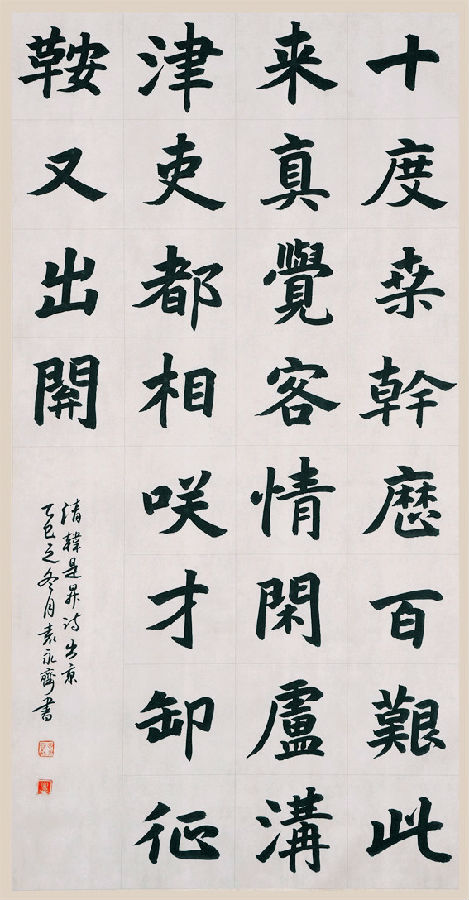 十度桒幹歷百艱此
来真覺客情閑盧溝
津吏都相咲才卸征
鞍又出關
清韓是昇诗出京
乙巳之冬月袁永齊書